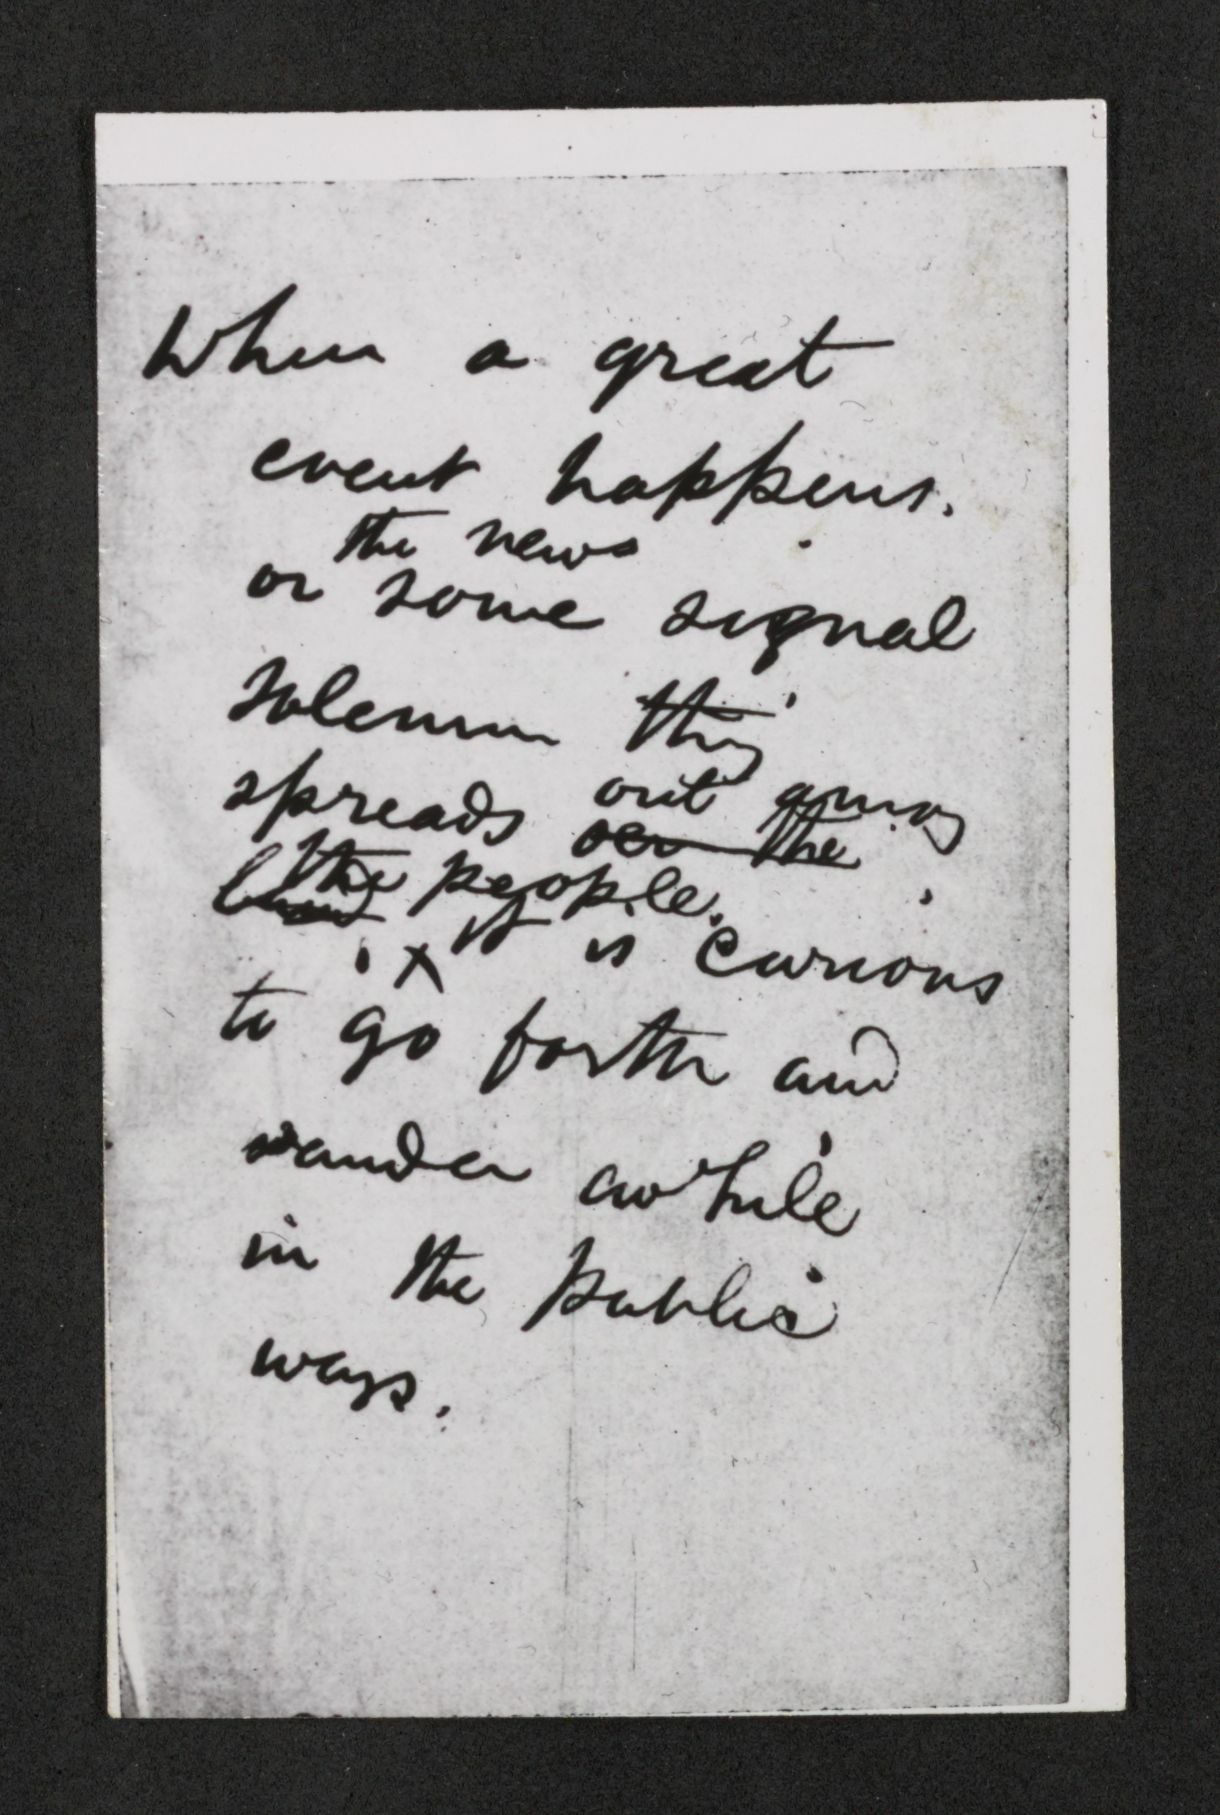 When a great
event happens.
the news
or some signal
solemn thing
spreads out among
over the
land the people.
x It is curious
to go forth and
wander awhile
in the public
ways.